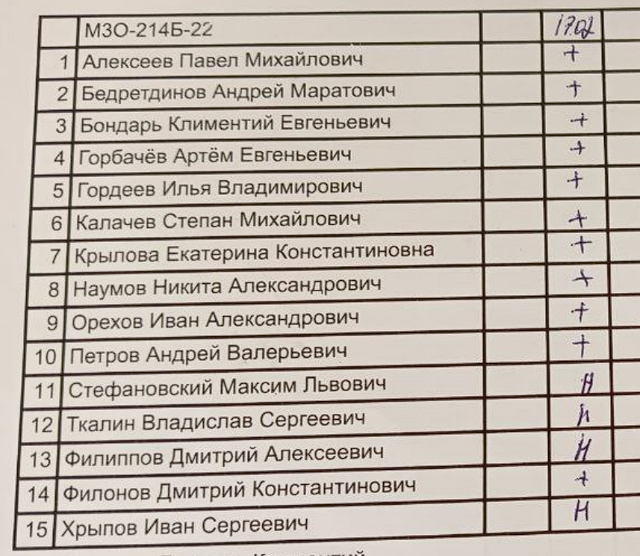 М3О-214Б-22 17.02
1 Алексеев Павел Михайлович +
2 Бедретдинов Андрей Маратович +
3 Бондарь Климентий Евгеньевич +
4 Горбачёв Артём Евгеньевич +
5 Гордеев Илья Владимирович +
6 Калачев Степан Михайлович +
7 Крылова Екатерина Константиновна +
8 Наумов Никита Александрович +
9 Орехов Иван Александрович +
10 Петров Андрей Валерьевич +
11 Стефановский Максим Львович Н
12 Ткалин Владислав Сергеевич Н
13 Филиппов Дмитрий Алексеевич Н
14 Филонов Дмитрий Константинович +
15 Хрыпов Иван Сергеевич Н